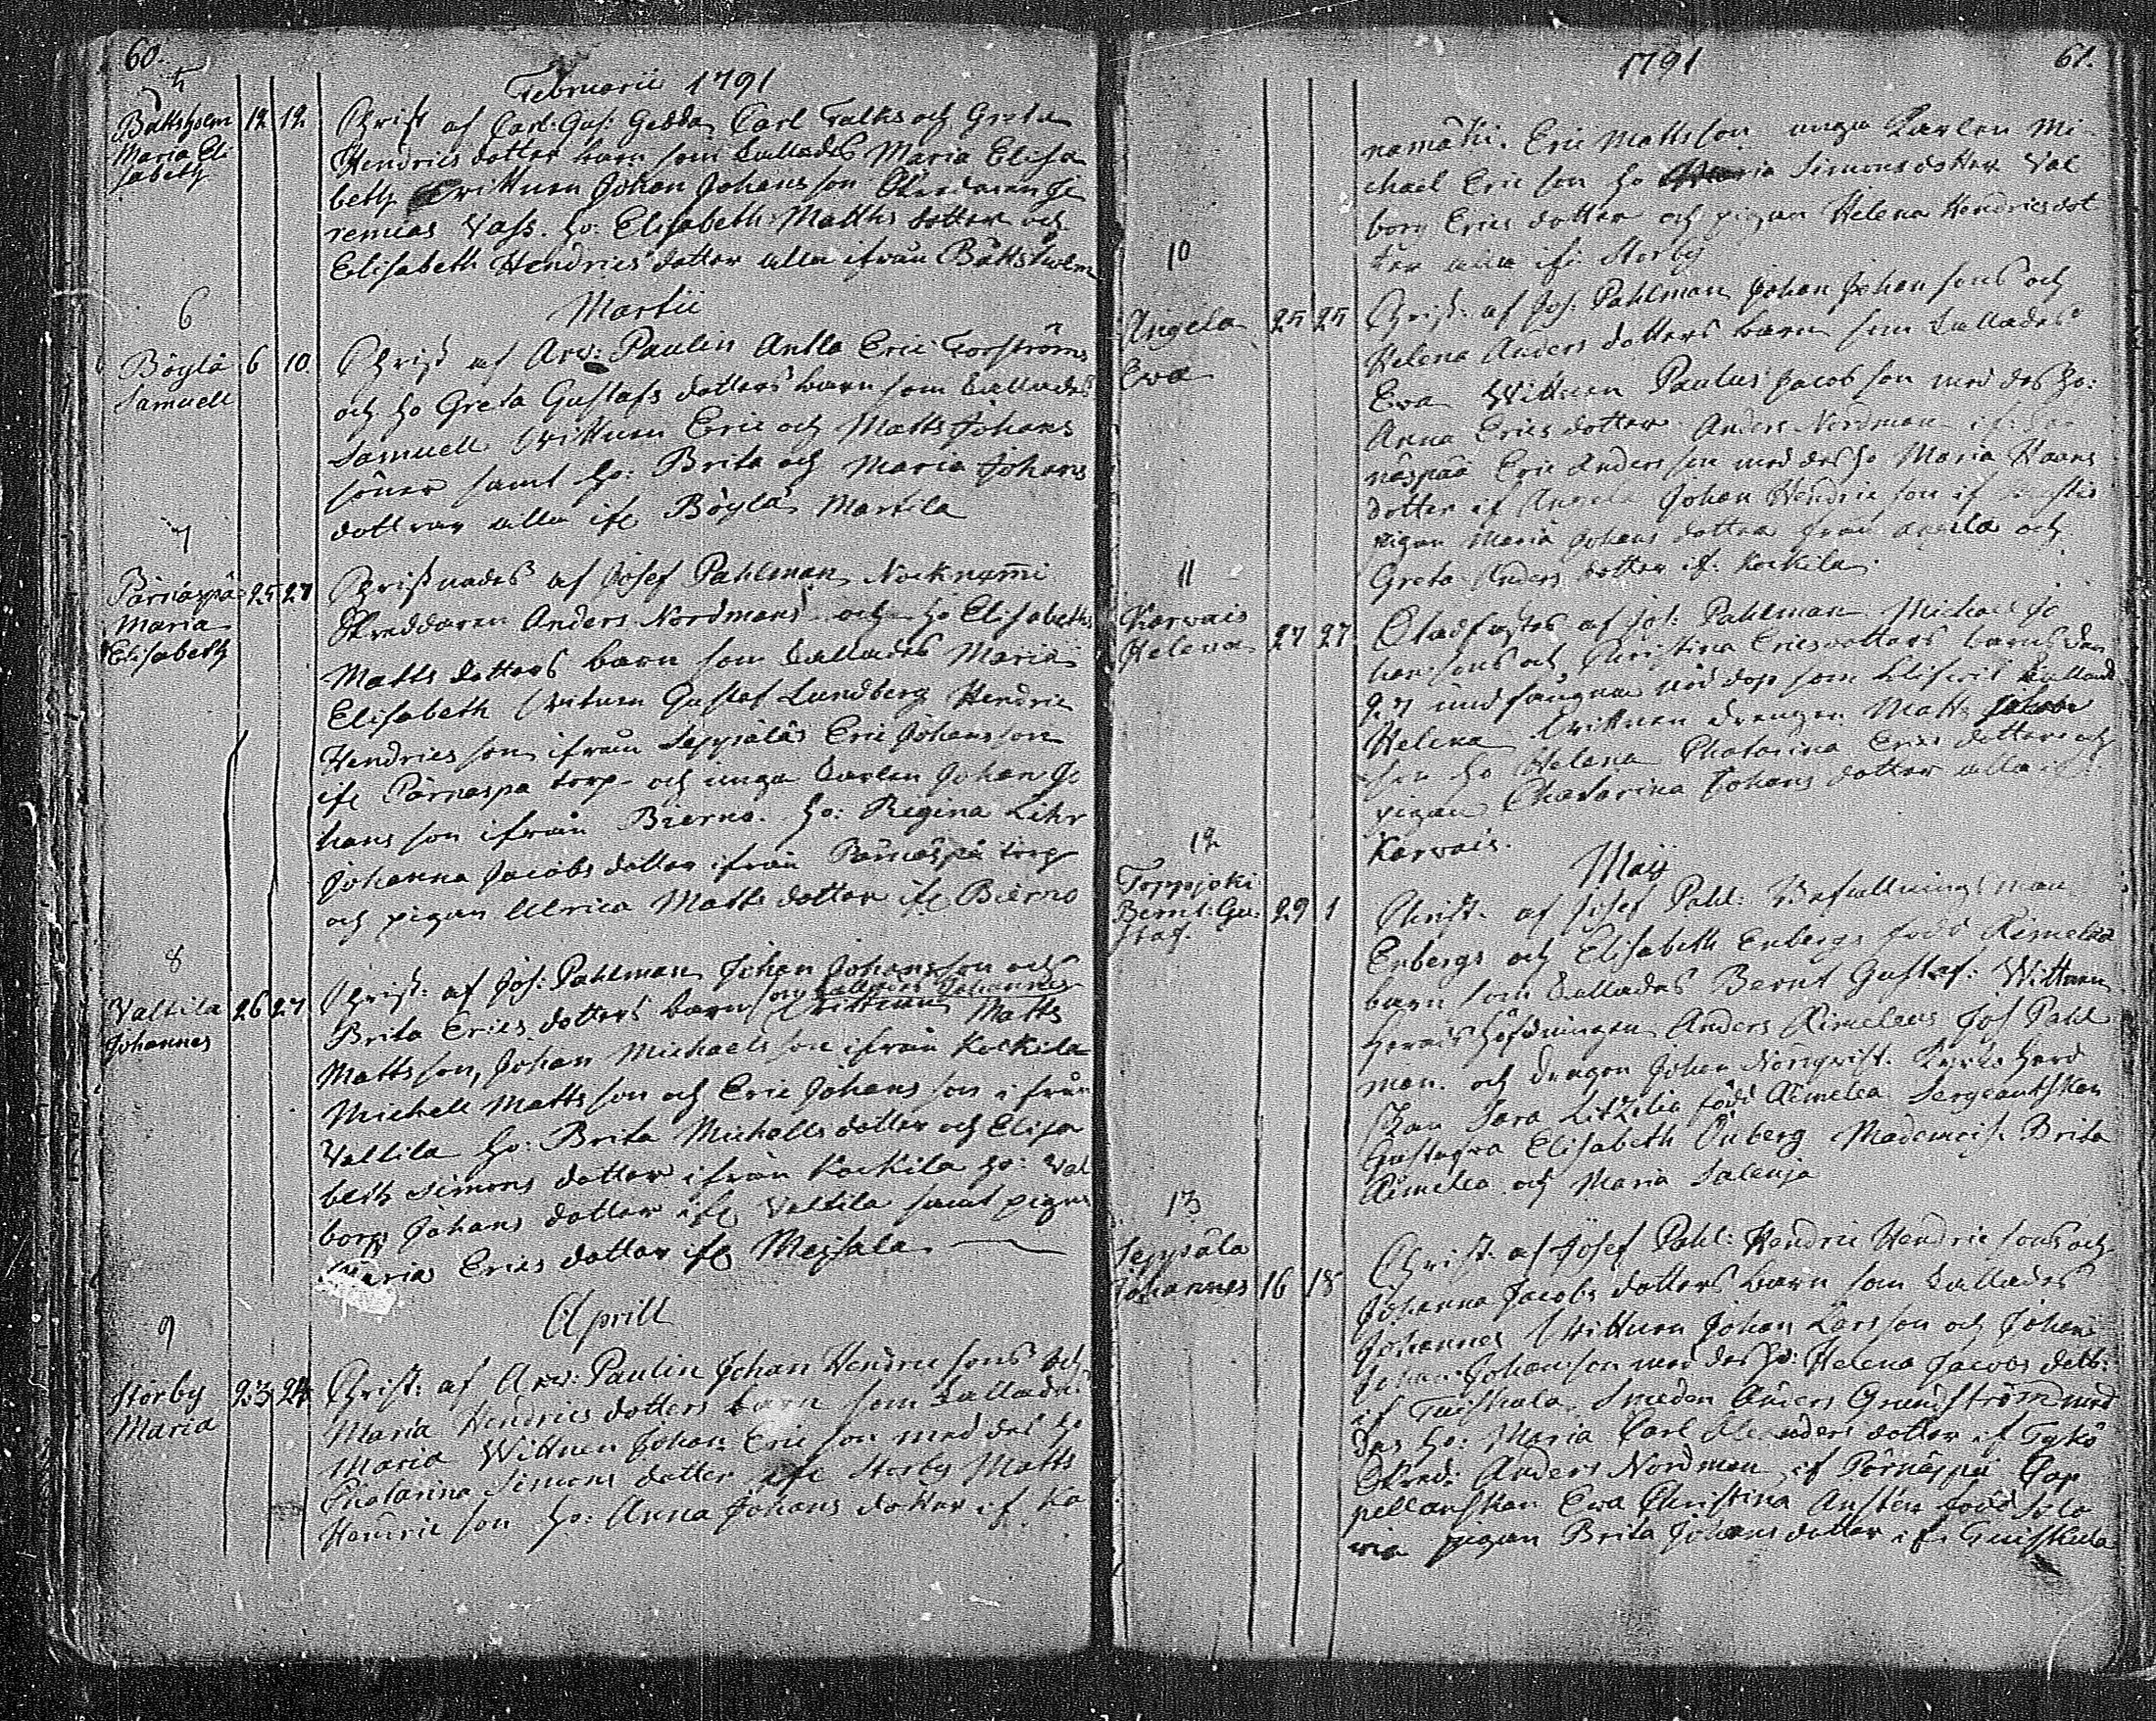 60.
5
Februarii 1791
Båttsholm 12 12 Christ af Carl: Gus: Gedda Carl Falks och Greta
Maria Eli Hendrics dotter barn som kallades Maria Elisa
sabeth beth Wittnen Johan Johansson Je
remias Vass. ho: Elisabeth Matths dotter och
Elisabeth Hendrics dotter alla ifrån Båttsholm
Martii
6
Böylä 6 10 Christ af Arv: Paulin Antla Eric Forströms
Samuell och ho Greta Gustafs dotters barn som kallades
Samuell Wittnen Eric och Matts Johans
söner samt ho: Brita och Maria Johans
dottrar alla if Böylä Martila
7
Pärnäspä 25 27 Christnades af Josef Pahlman Nocknami
Maria Skreddaren Anders Nordmans och ho Elisabeths
Elisabeth Matts dotters barn som kallades Maria
Elisabeth Witnen Gustaf Lundberg Hendric
Hendricsson ifrån Seppälä Eric Johansson
if Pärnäspä torp och unga karlen Johan Jo
hansson ifrån Bierno. ho: Regina Lihr
Johanna Jacobs dotter ifrån Pärnäspä torp
och pigan Ulrica Matts dotter if Bierno
8
Valtila 26 27 Christ: af Jos: Pahlman Johan Johansson och
Johannes Brita Erics dotters barn som kallades Johannes Wittnen Matts
Mattsson, Johan Michaelsson ifrån Kockila
Michell Mattsson och Eric Johansson ifrån
Valtila ho: Brita Michells dotter och Elisa
beth Simons dotter ifrån Kockila ho: Val
borg Johans dotter if Valtila samt pigan
Maria Erics dotter if Mejsala
Aprill
9
Storby 23 24 Christ: af Arv: Paulin Johan Hendricsons och
Maria Maria Hendrics dotters barn som kallades
Maria Wittnen Johan Ericson med des ho
Chatarina Simons dotter if Storby Matts
Hendricson ho: Anna Johans dotter if Ka
1791 61.
namäki. Eric Mattsson unga karlen Mi
chael Ericson ho Maria Simonsdotter Val
borg Erics dotter och pigan Helena Hendricsdot
ter alla if: Storby
10
Angela 25 25 Christ: af Jos: Pahlman Johan Johansons och
Eva Helena Anders dotters barn som kallades
Eva Wittnen Paulus Jacobson med des ho:
Anna Erics dotter Anders Nordman if:
näspää Eric Andersson med des ho Maria Haans
dotter if Angela Johan Hendricson if
pigan Maria Johans dotter från Angela och
Greta Anders dotter if: Kockila
11
Karvais 27 27 Stadfästes af Jos: Pahlman Michael Jo
Helena hansons och Christina Ericsdotters barns den
27 undfångna nöddop som blifwit kallad
Helena Wittnen drengen Matts
son ho Helena Chatarina Erics dotter och
pigan Chatarina Johans dotter alla if:
Karvais.
Maij
12
Toppjoki
Bernt: Gu: 29 1 Christ. af Josef Pahl: Befallningsman
staf. Enbergs och Elisabeth Enbergs född Rimelea
barn som kallades Bernt Gustaf: Wittnen
Heradshöfdningen Anders Rimeleus Jos Pahl
man. och dragon Johan Nörqvist. Kyrko herd
skan Sara Litzelia född Rimelea Sergeantskan
Gustafva Elisabeth Önberg Mademois: Brita
Rimelea och Maria Salenja
13
Seppälä
Johannes 16 18 Christ. af Josef Pahl: Hendric Hendricsons och
Johanna Jacobs dotters barn som kallades
Johannes Wittnen Johan Larsson och Johan
Johansson med des ho: Helena Jacobs dott:
if Tuiskula Smeden Anders Grundström med
des ho: Maria Carl dotter if Tykö
Skred: Anders Nordman if Pärnäspä Cap
pellanskan Eva Christina Austen född Polo
via pigan Brita Johans dotter if: Tuiskula